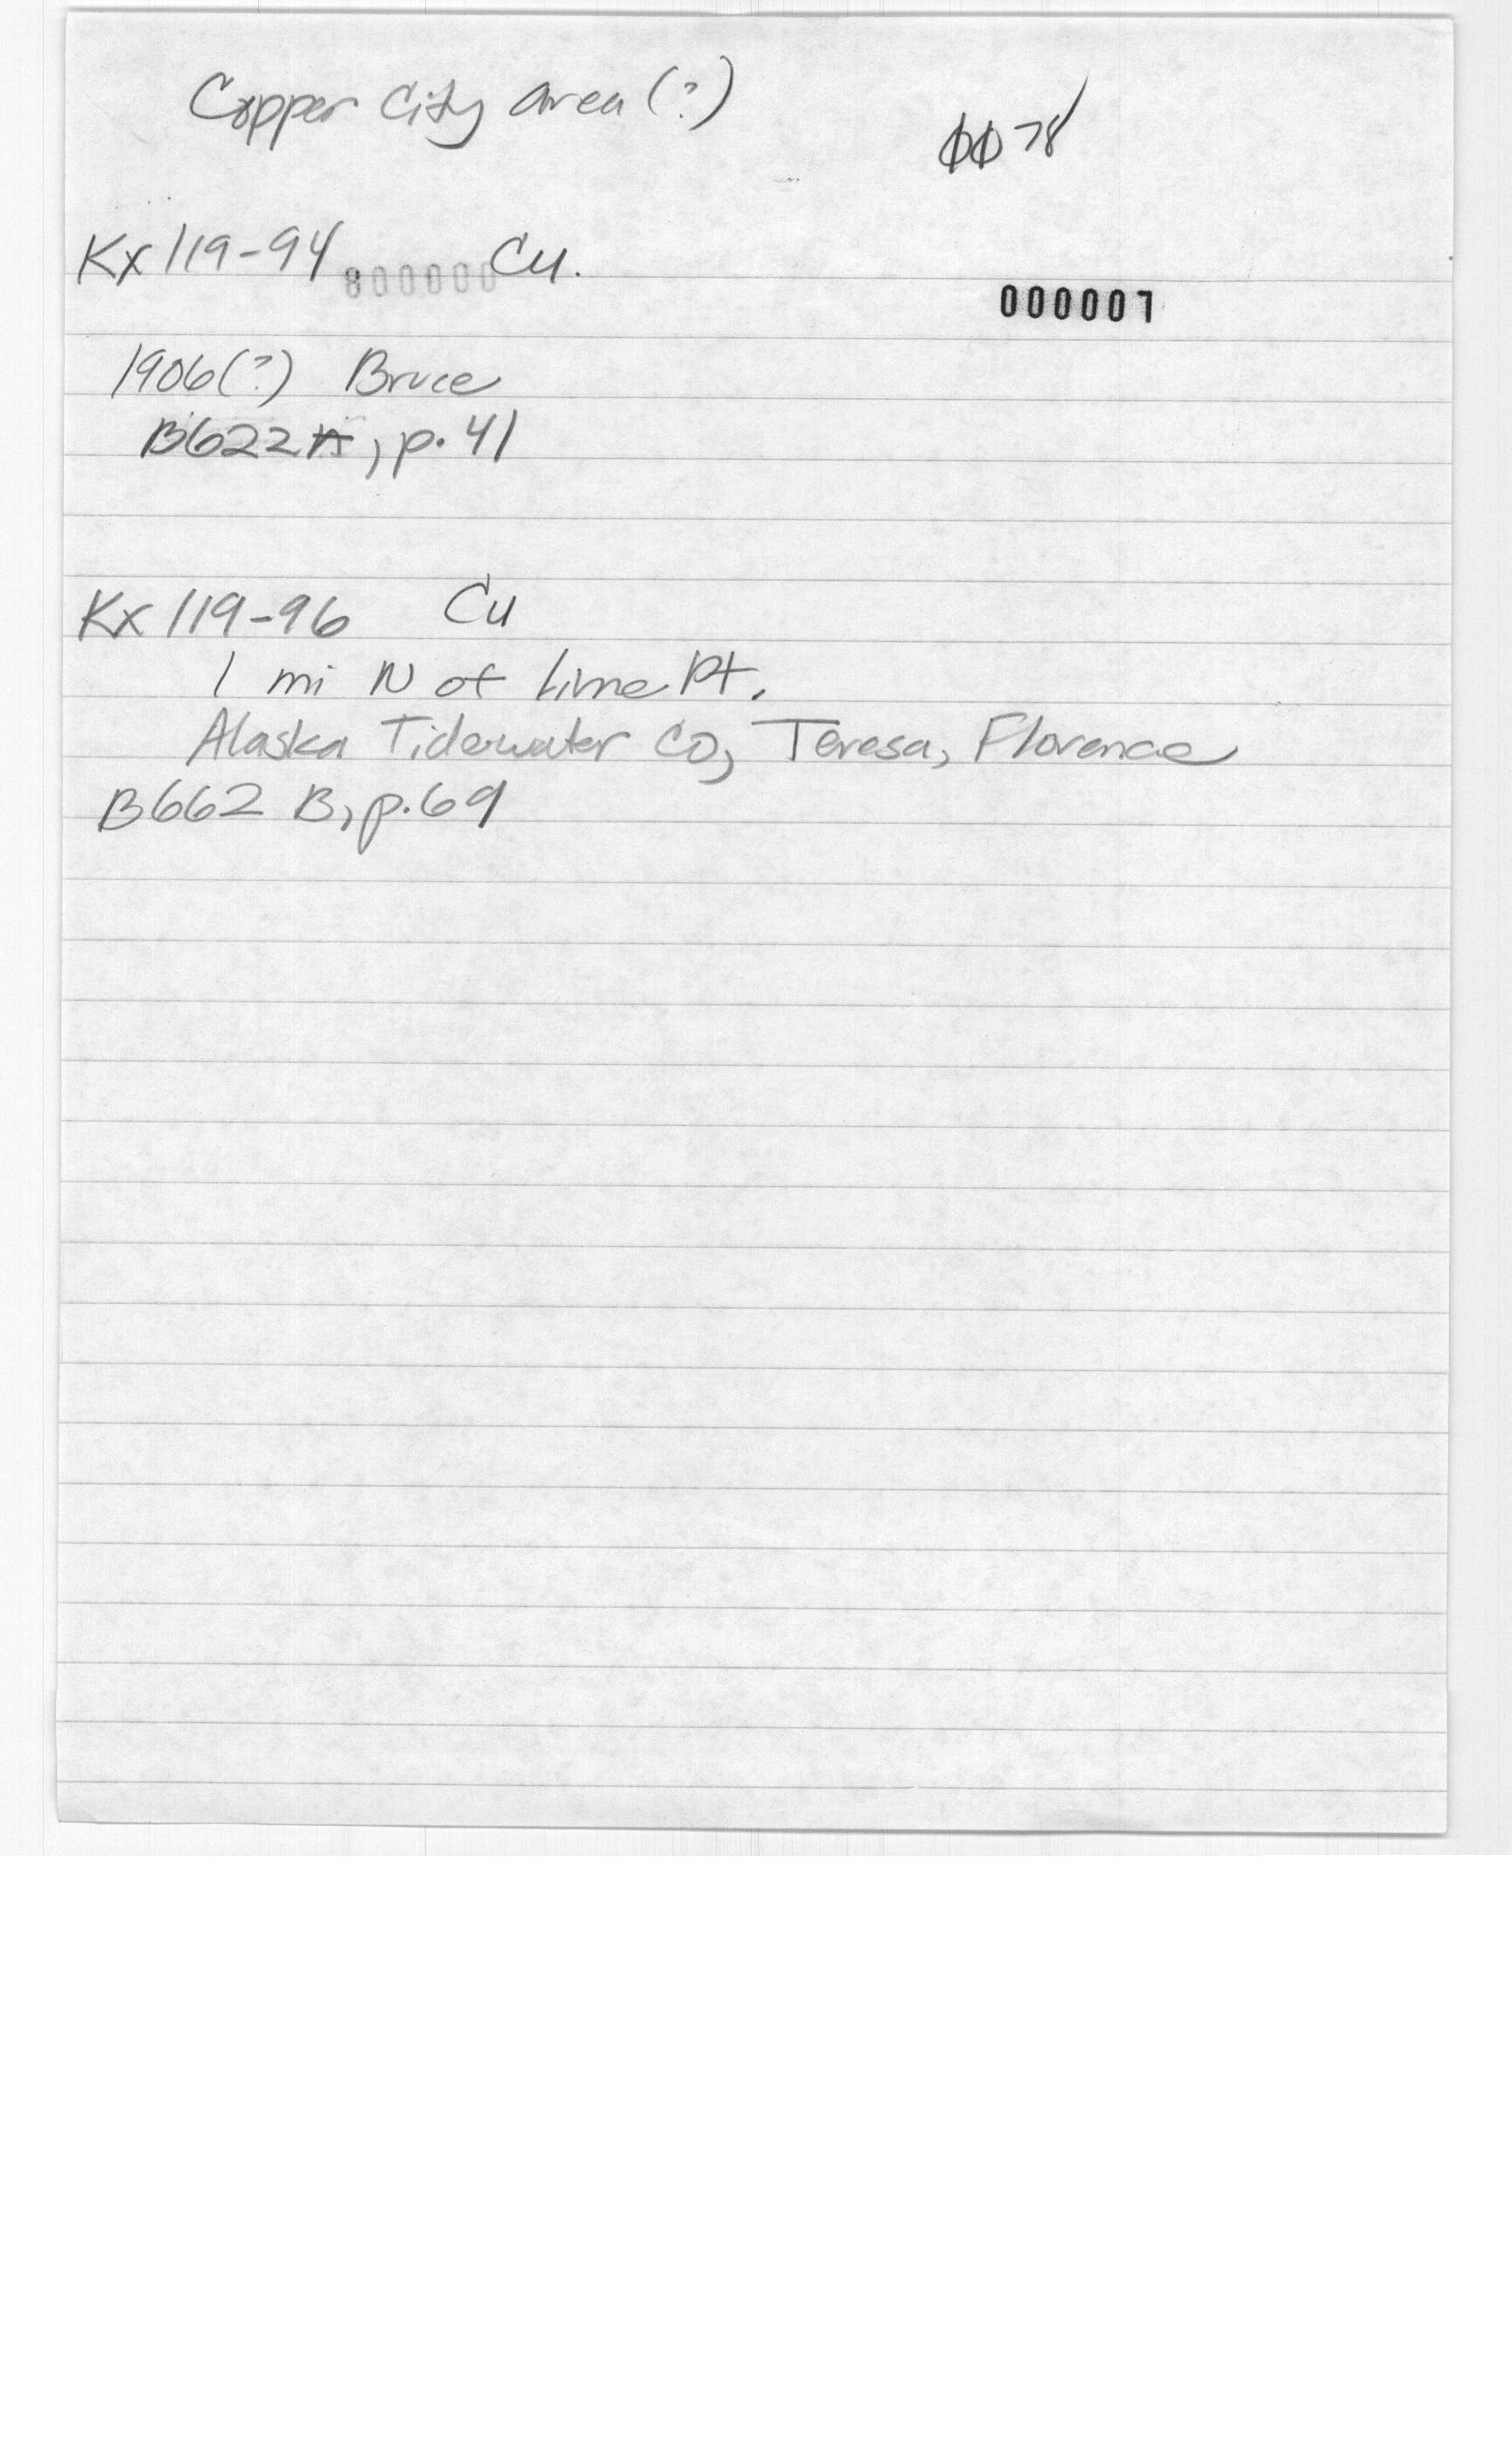 Copper City area (?)
ØØ78
Kx 119-94 Cu.
000008
000007
1906(?) Bruce
B622A, p. 41
Kx 119-96 Cu
1 mi N of Lime Pt.
Alaska Tidewater Co, Teresa, Florence
B662 B, p. 69